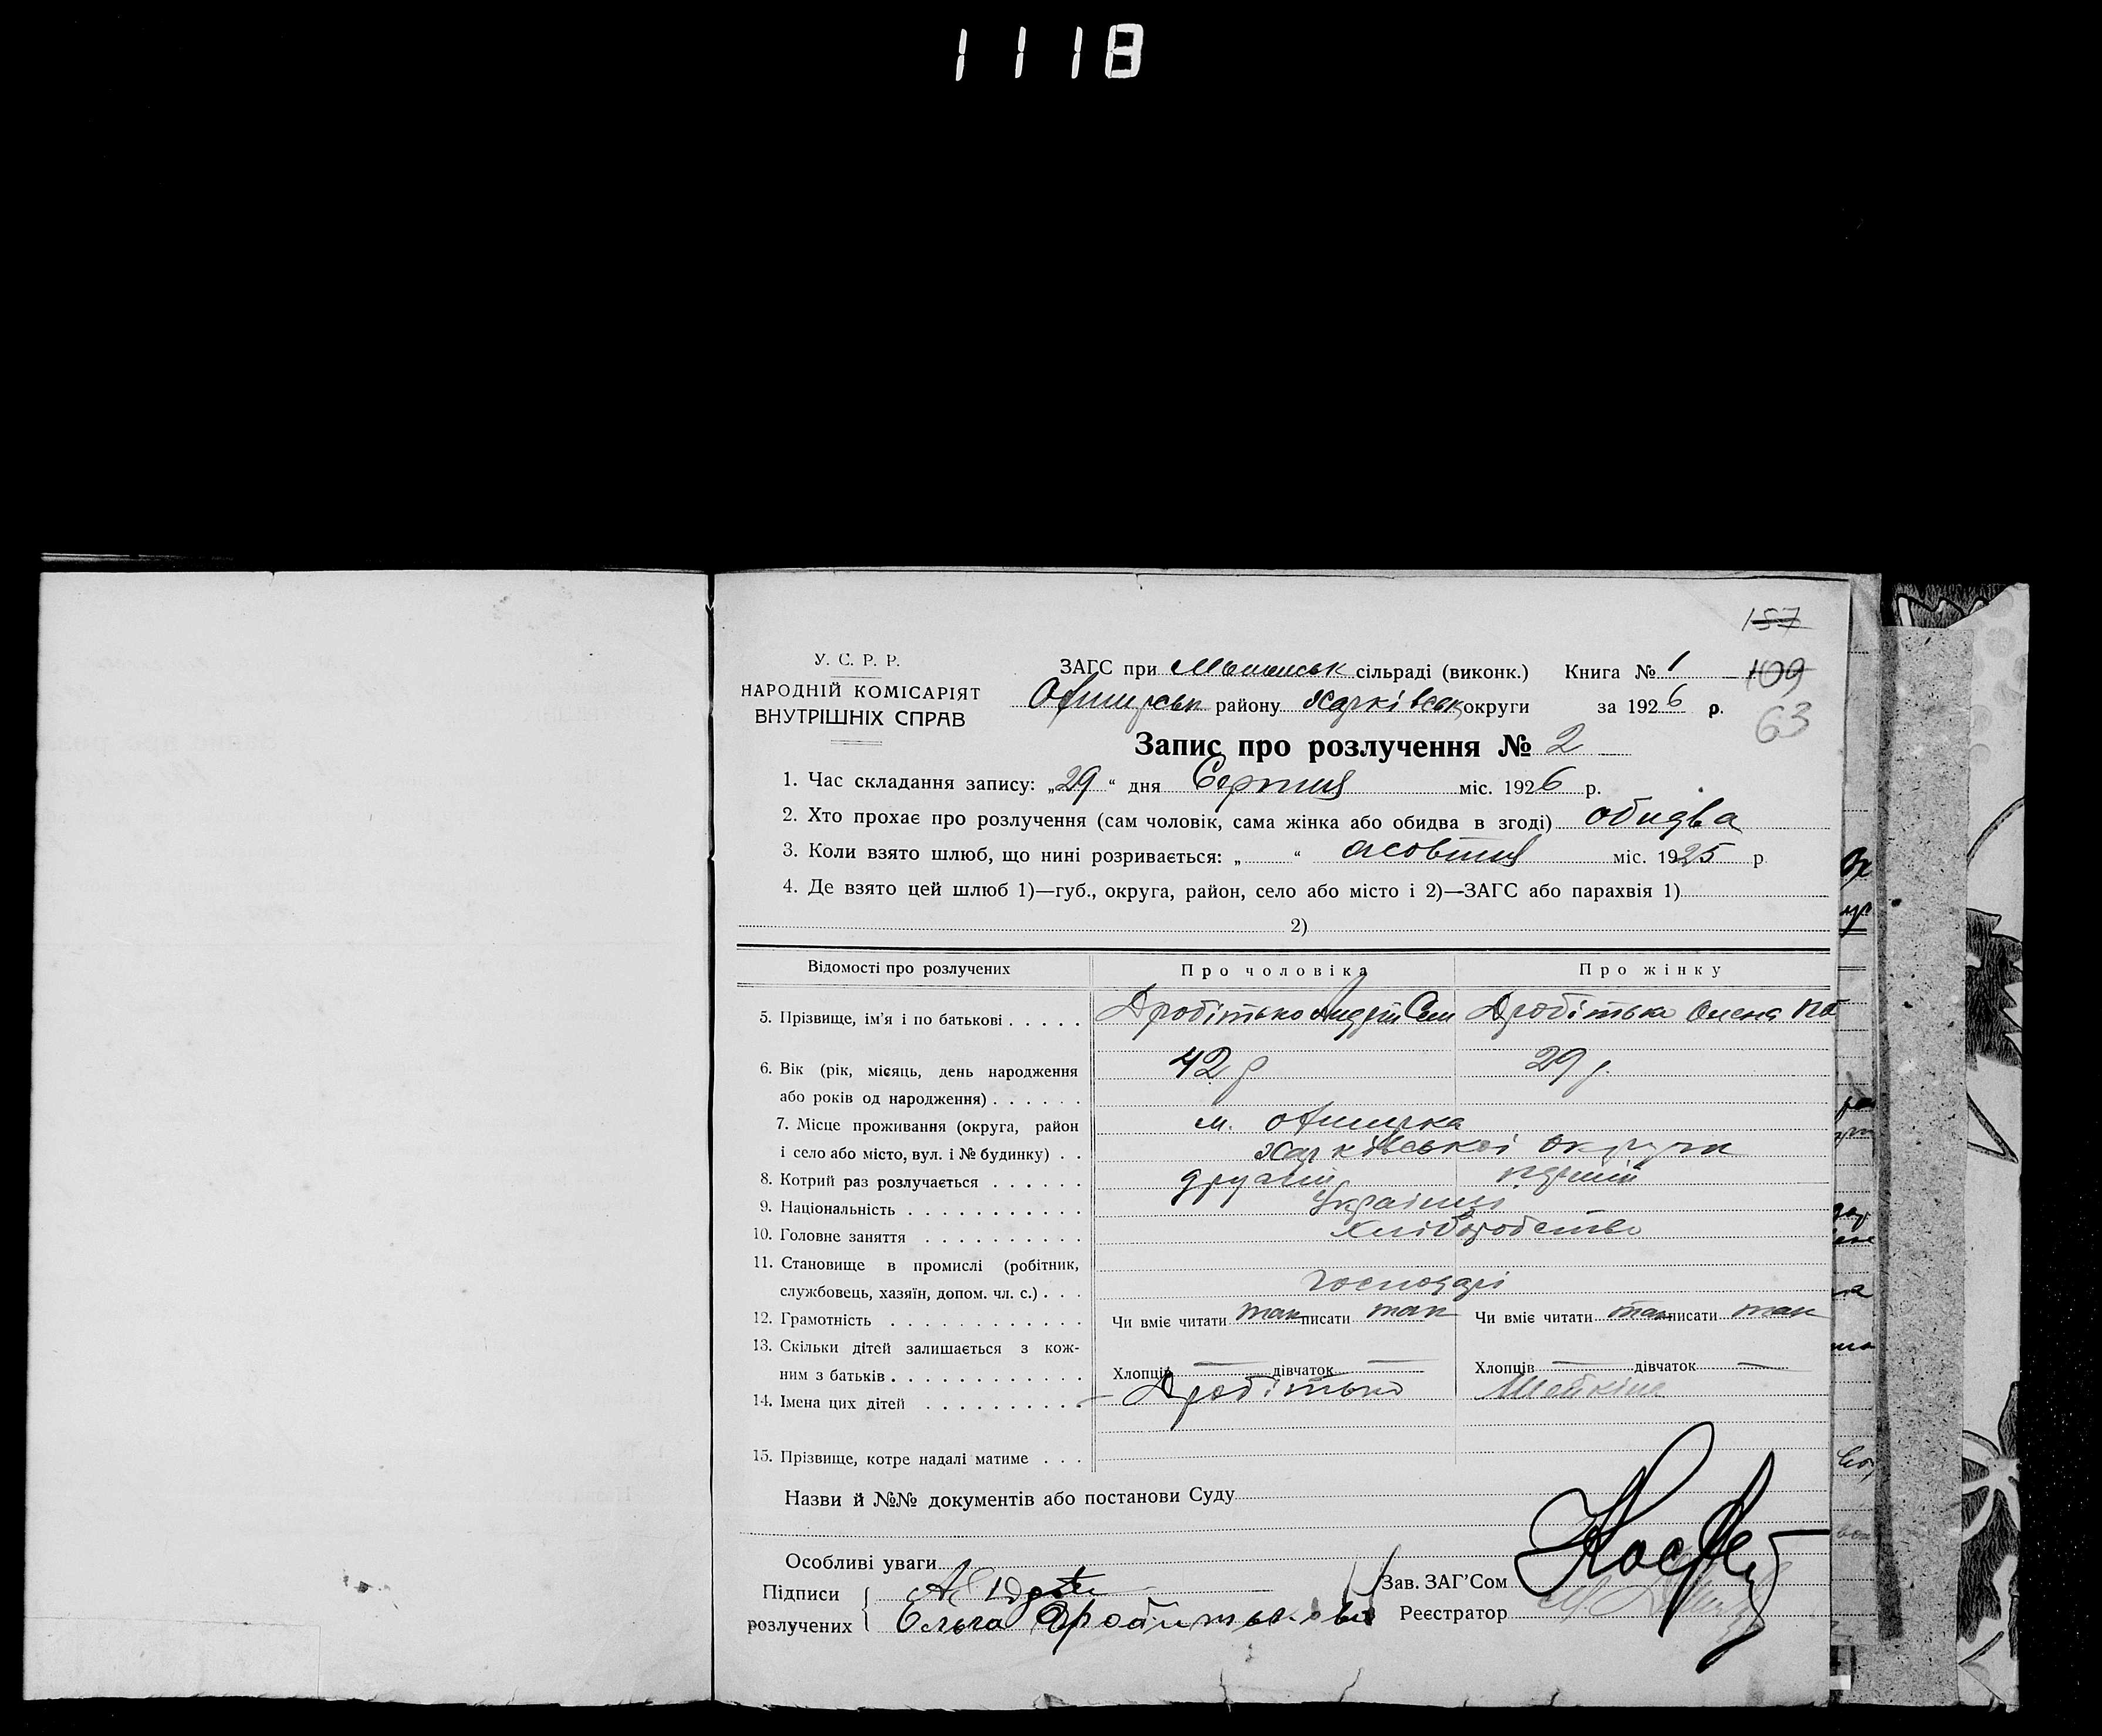 1118
157
У. С. Р. Р.
НАРОДНІЙ КОМІСАРІЯТ
ВНУТРІШНІХ СПРАВ
ЗАГС при сільраді (виконк.) Книга № 1 109
району Харківськ округи за 1926 р. 63
Запис про розлучення № 2
1. Час складання запису: „29“ дня Серпня міс. 1926 р.
2. Хто прохає про розлучення (сам чоловік, сама жінка або обидва в згоді) обидва
3. Коли взято шлюб, що нині розривається: „ “ жовтня міс. 1925 р
4. Де взято цей шлюб 1)—губ., округа, район, село або місто і 2)—ЗАГС або парахвія 1)
2)
Відомості про розлучених Про чоловіка Про жінку
5. Прізвище, ім'я і по батькові Дробітько Сем Дробітька Олена
6. Вік (рік, місяць, день народження 42 р 29 р.
або років од народження)
7. Місце проживання (округа, район м.
і село або місто, вул. і № будинку) Харківської округи
8. Котрий раз розлучається другий перший
9. Національність Українці
10. Головне заняття Хліборобство
11. Становище в промислі (робітник,
службовець, хазяїн, допом. чл. с.) господарі
12. Грамотність Чи вміє читати так писати так Чи вміє читати так писати так
13. Скільки дітей залишається з кож-
ним з батьків Хлопців — дівчаток — Хлопців — дівчаток —
14. Імена цих дітей Дробітько
15. Прізвище, котре надалі матиме
Назви й №№ документів або постанови Суду
Особливі уваги
Підписи
розлучених
Зав. ЗАГ'Сом
Реєстратор